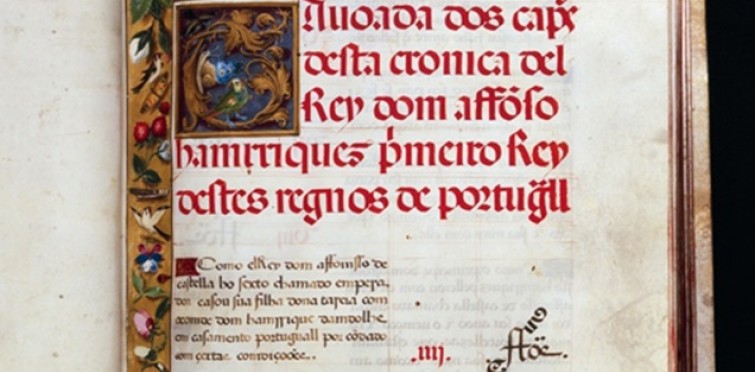 Tavoada dos capͫ
desta cronica del
Rey dom affõso
hamrriques pͥmeiro Rey
destes regnos de portugᷓll
Como elRey dom affomsso de
castella ho sexto chamado empera-
dor casou sua filha dona tareia com
o conde dom hamrrique damdolhe
em casamento portuguall por cõdado
com çertas comdiçoões..
.iiij.